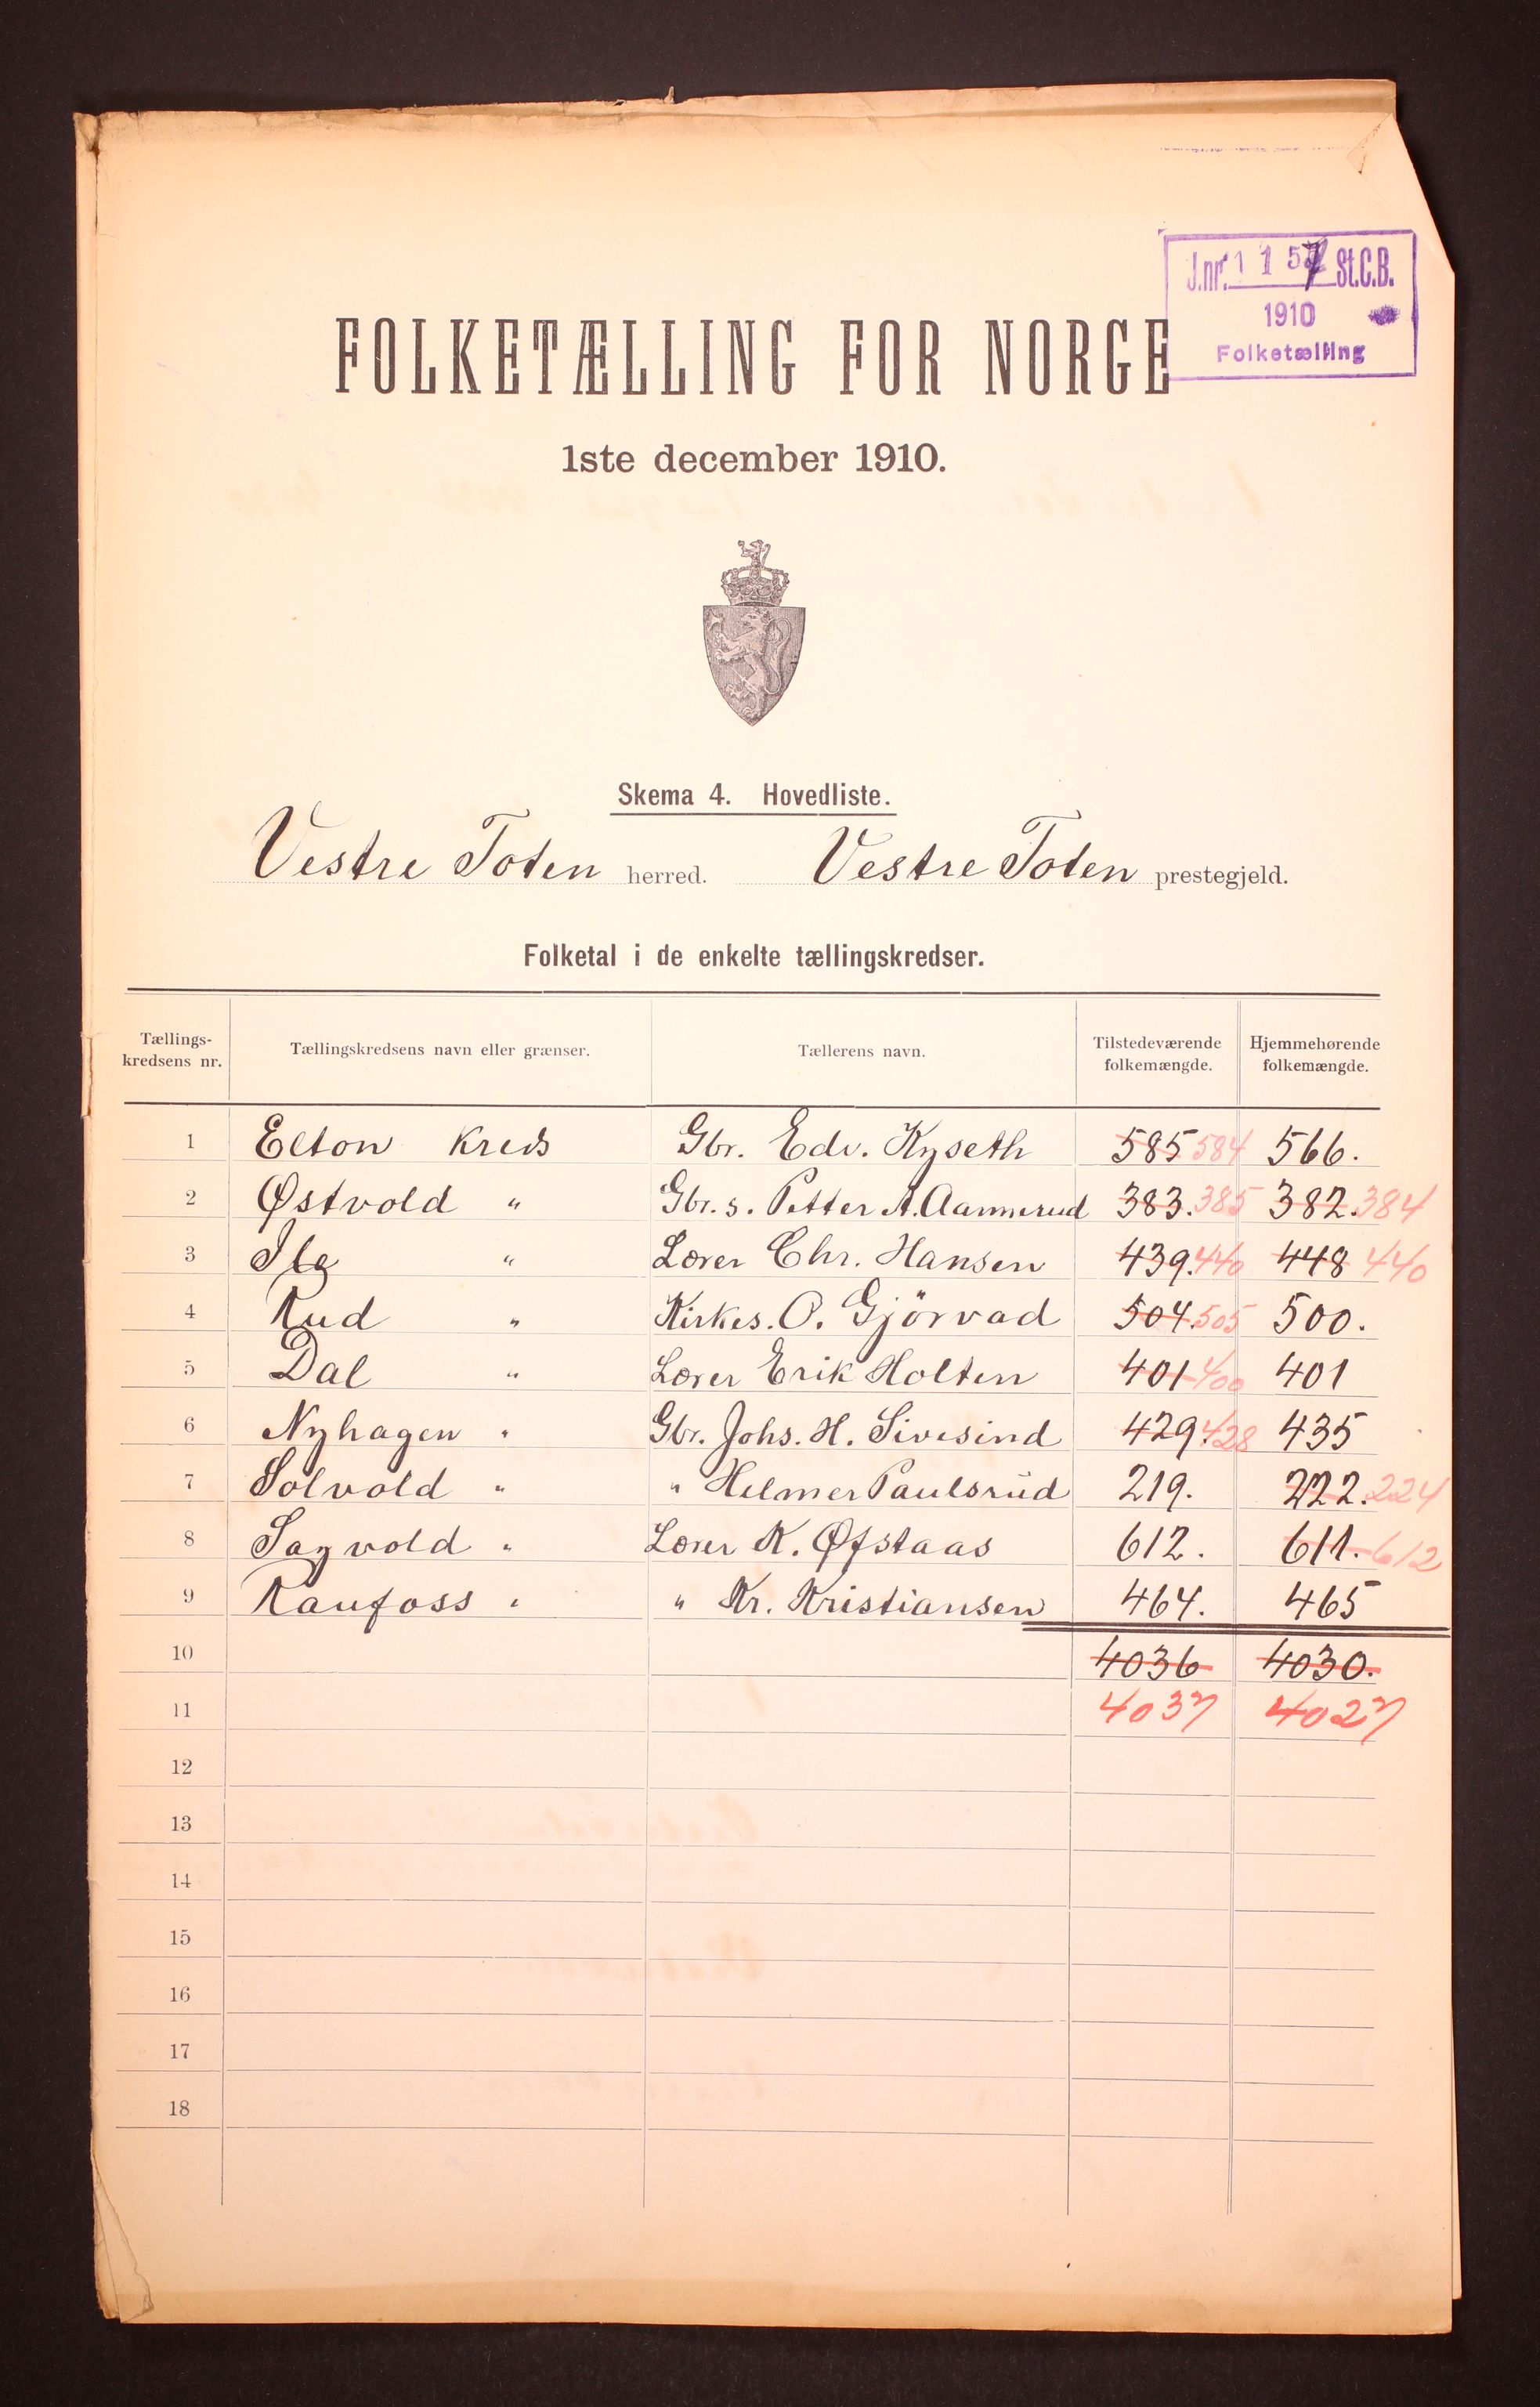 J.nr. 1157 St.C.B.
1910
Folketælling
FOLKETÆLLING FOR NORGE
1ste december 1910.
Skema 4. Hovedliste.
Vestre Toten herred. Vestre Toten prestegjeld.
Folketal i de enkelte tællingskredser.
Tællings-kredsens nr. Tællingskredsens navn eller grænser. Tællerens navn. Tilstedeværende folkemængde. Hjemmehørende folkemængde.
1 Elton Kreds Gbr. Edv. Kyseth 585 584 566.
2 Østvold " Gbr. s. Petter A. Aannerud 383. 385 382. 384
3 Ile " Lærer Chr. Hansen 439. 440 448 440
4 Rud " Kirkes. O. Gjörvad 504. 505 500.
5 Dal " Lærer Erik Holten 401 400 401
6 Nyhagen " Gbr. Johs. H. Sivesind 429. 428 435
7 Solvold " " Helmer Paulsrud 219. 222. 224
8 Sagvold " Lærer K. Øfstaas 612. 611. 612
9 Raufoss " " Kr. Kristiansen 464. 465
10 4036 4030.
11 4037 4027
12
13
14
15
16
17
18